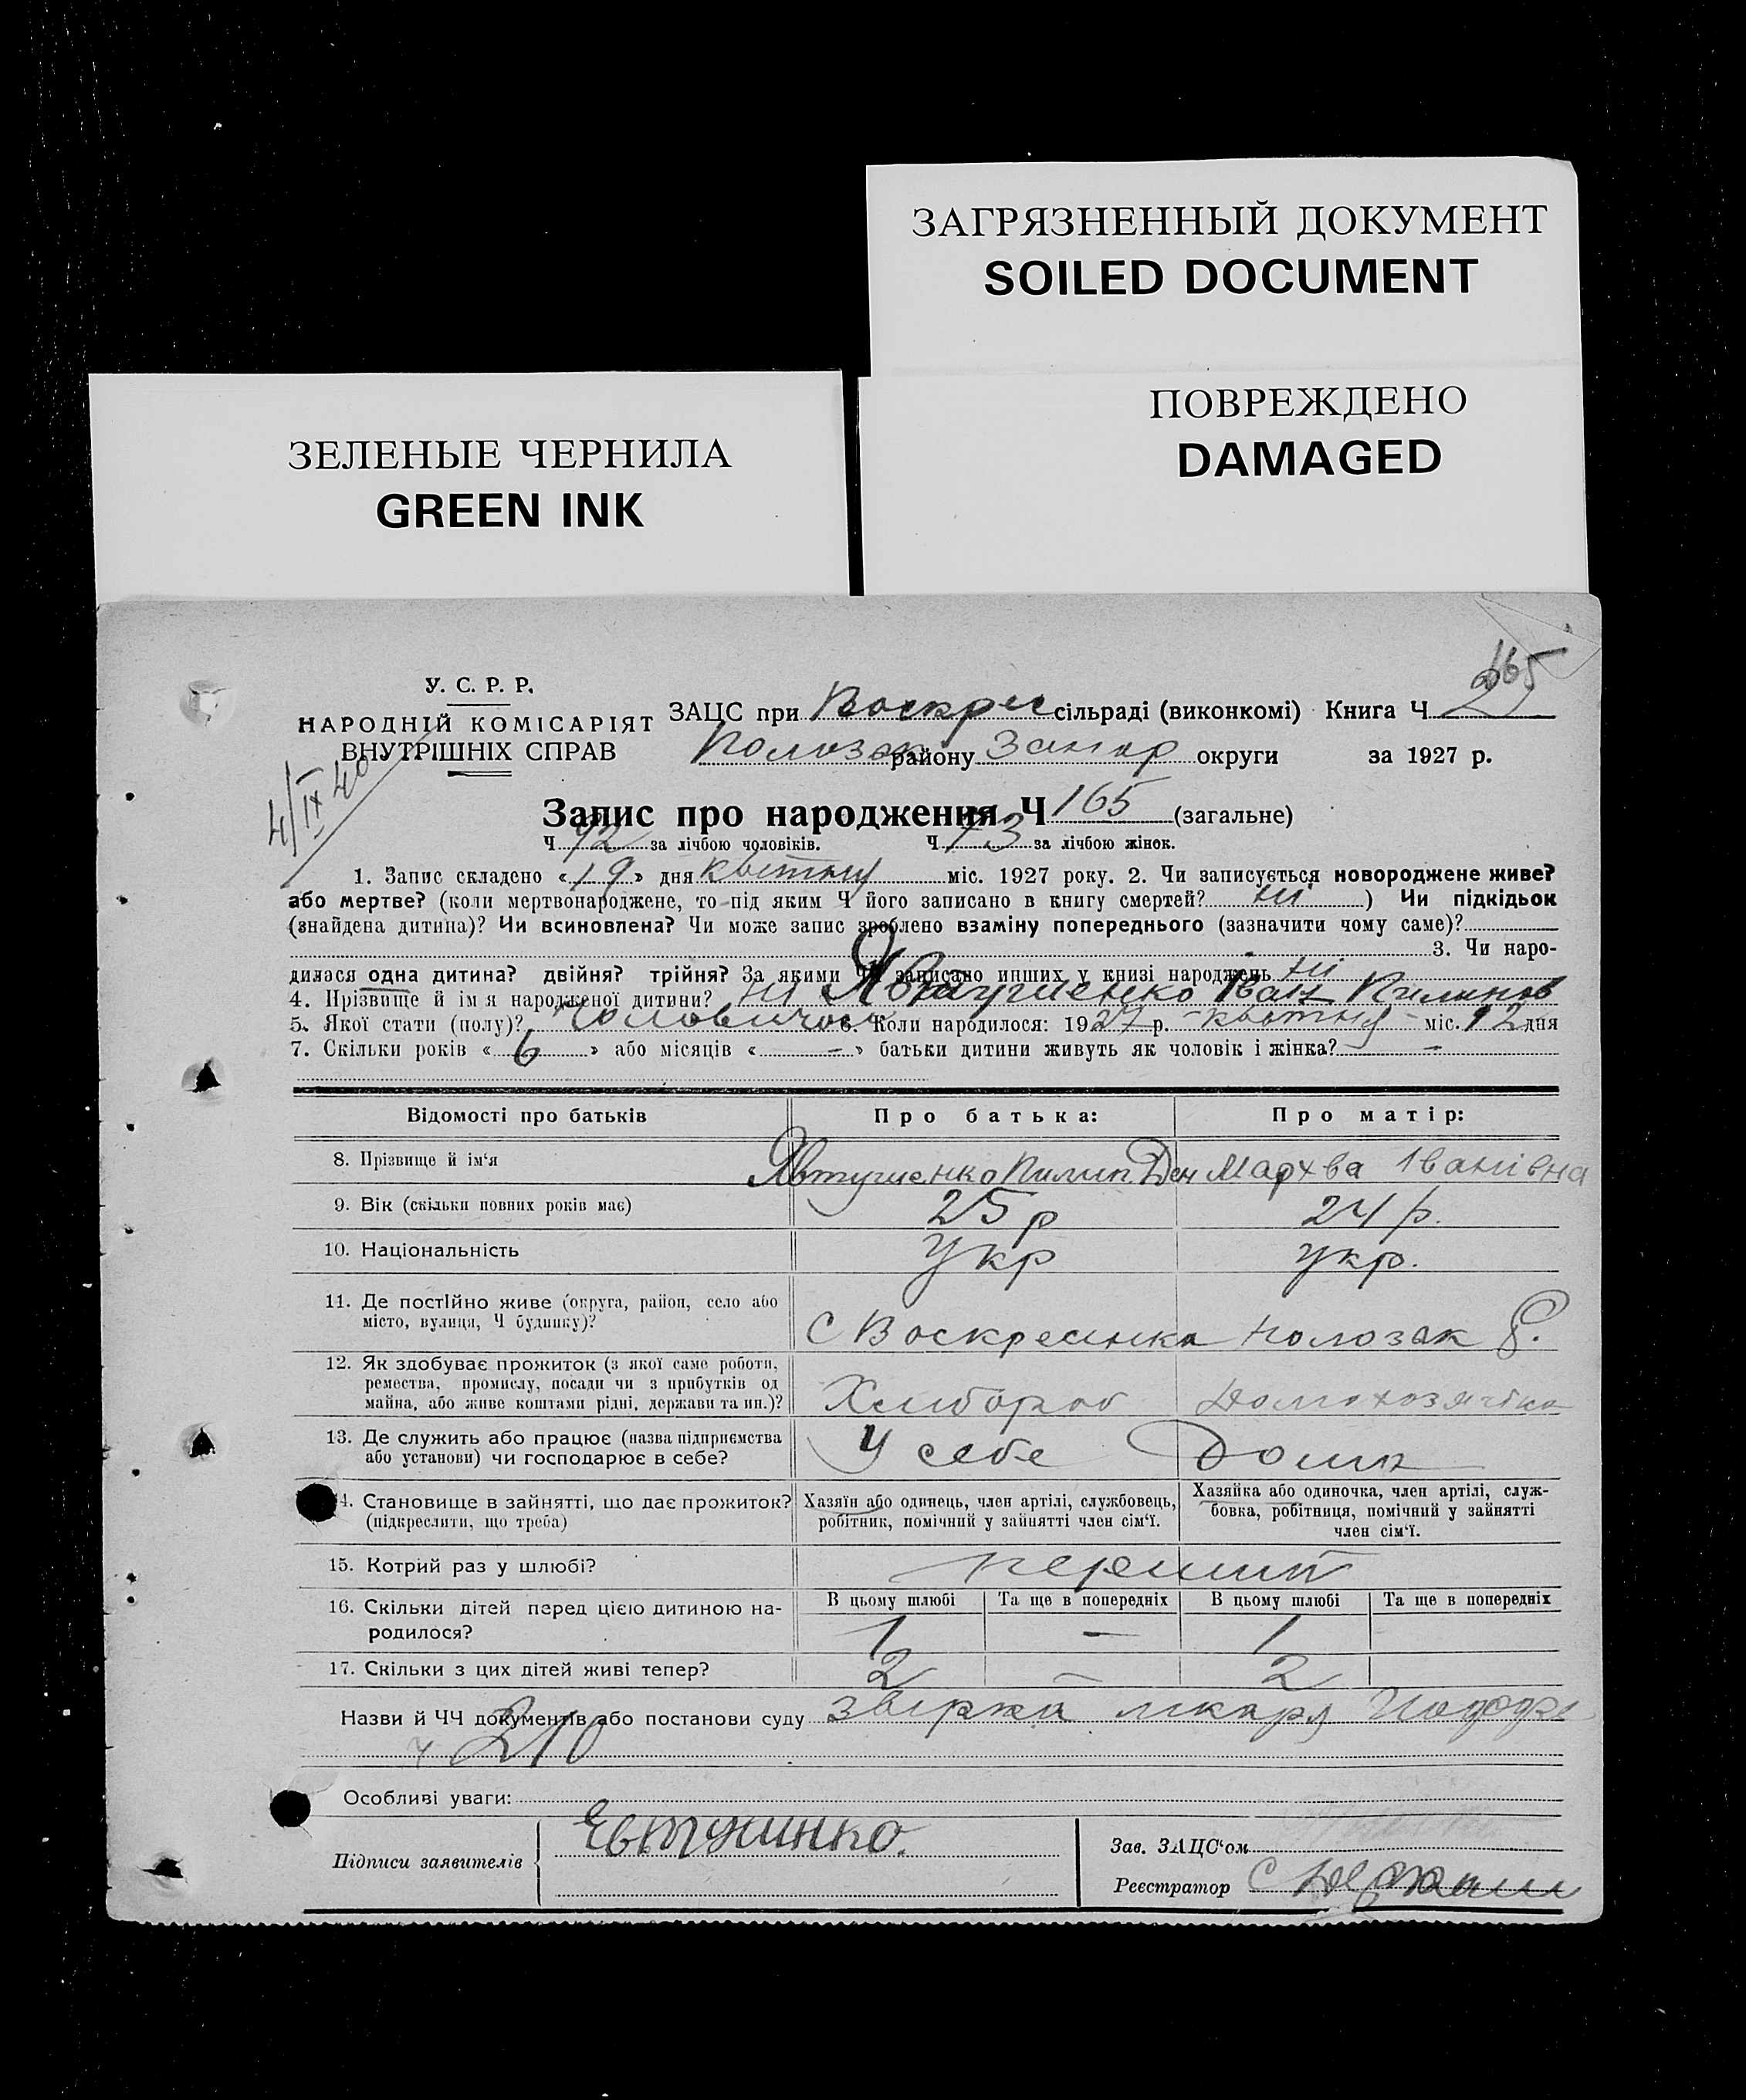 ЗАГРЯЗНЕННЫЙ ДОКУМЕНТ
SOILED DOCUMENT
ПОВРЕЖДЕНО
DAMAGED
ЗЕЛЕНЫЕ ЧЕРНИЛА
GREEN INK
165
У. С. Р. Р.
НАРОДНІЙ КОМІСАРІЯТ
ВНУТРІШНІХ СПРАВ
4/IX 40
ЗАЦС при Воскрес сільраді (виконкомі) Книга Ч 2
Полозак району Запор округи за 1927 р.
Запис про народження Ч 165 (загальне)
Ч 92 за лічбою чоловіків. Ч 73 за лічбою жінок.
1. Запис складено «19» дня квітня міс. 1927 року. 2. Чи записується новороджене живе?
або мертве? (коли мертвонароджене, то під яким Ч його записано в книгу смертей? ні ) Чи підкідьок
(знайдена дитина)? Чи всиновлена? Чи може запис зроблено взаміну попереднього (зазначити чому саме)?
3. Чи наро-
дилася одна дитина? двійня? трійня? За якими ЧЧ записано инших у книзі народжень ні
4. Прізвище й ім'я народженої дитини? ні Явтушенко Іван Пилипов
5. Якої стати (полу)? чоловичої 6. Коли народилося: 1927 р. квітня міс. 12 дня
7. Скільки років «6» або місяців « — » батьки дитини живуть як чоловік і жінка? —
Відомості про батьків Про батька: Про матір:
8. Прізвище й ім'я Явтушенко Пилип Дем Мархва Іванівна
9. Вік (скільки повних років має) 25 р 24 р.
10. Національність Укр укр.
11. Де постійно живе (округа, район, село або
місто, вулиця, Ч будинку)? С Воскресинка Полозак р.
12. Як здобуває прожиток (з якої саме роботи,
ремества, промислу, посади чи з прибутків од
майна, або живе коштами рідні, держави та ин.)? Хлибороб Домохозяйка
13. Де служить або працює (назва підприємства
або установи) чи господарює в себе? У себе Дома
14. Становище в зайнятті, що дає прожиток?
(підкреслити, що треба)
Хазяїн або одинець, член артілі, службовець,
робітник, помічний у зайнятті член сім'ї.
Хазяйка або одиночка, член артілі, служ-
бовка, робітниця, помічний у зайнятті
член сім'ї.
15. Котрий раз у шлюбі? перший
16. Скільки дітей перед цією дитиною на-
родилося?
В цьому шлюбі Та ще в попередніх В цьому шлюбі Та ще в попередніх
1 — 1
17. Скільки з цих дітей живі тепер? 2 — 2
Назви й ЧЧ документів або постанови суду лікаря
Ч 210
Особливі уваги:
Підписи заявителів Євтушинко.
Зав. ЗАЦС'ом
Реєстратор